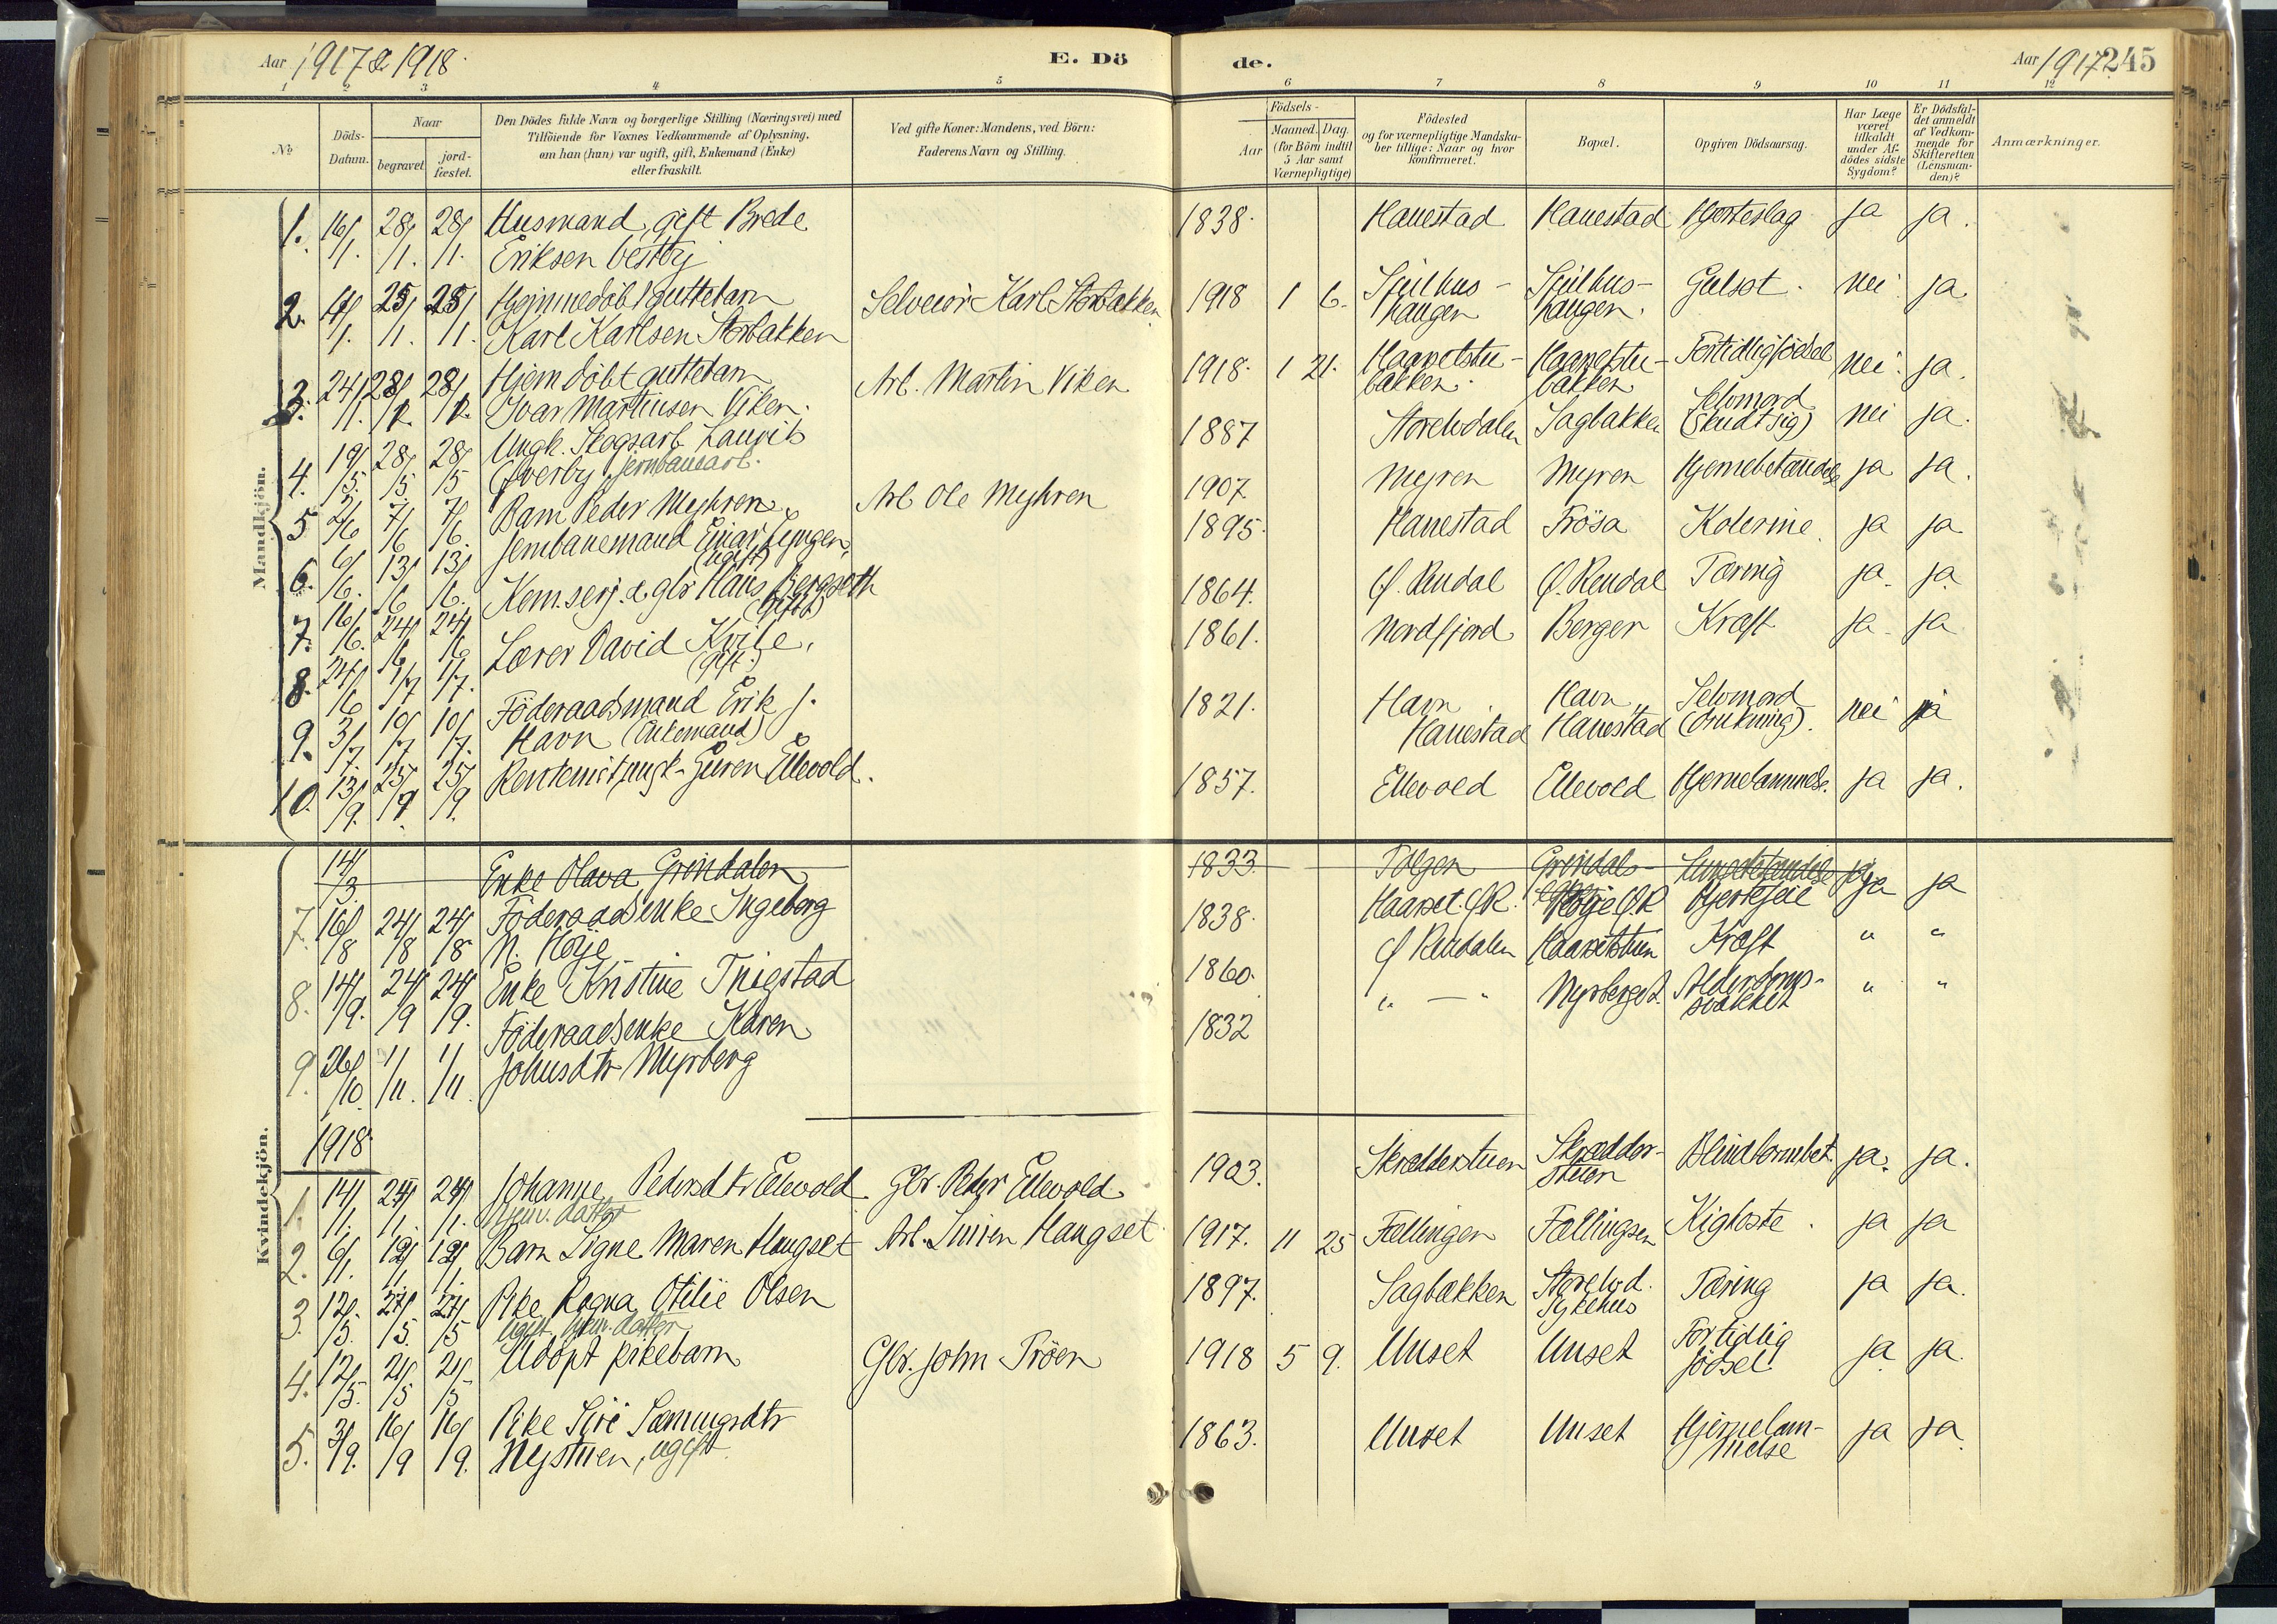 Aar 1917 & 1918.
E. Dö
de.
Aar 1917 245
1 2 3 4 5 6 7 8 9 10 11 12
No
Döds-Datum.
Naar
begravet
jord-fæstet.
Den Dödes fulde Navn og borgerlige Stilling (Næringsvei) med
Tilföiende for Voxnes Vedkommende af Oplysning,
om han (hun) var ugift, gift, Enkemand (Enke)
eller fraskilt.
Ved gifte Koner: Mandens, ved Börn:
Faderens Navn og Stilling.
Födsels-
Aar
Maaned. Dag.
(for Börn indtil
5 Aar samt
Værnepligtige)
Födested
og for værnepligtige Mandska-
ber tillige: Naar og hvor
konfirmeret.
Bopæl.
Opgiven Dödsaarsag.
Har Læge
været
tilkaldt
under Af-
dödes sidste
Sygdom?
Er Dödsfal-
det anmeldt
af Vedkom-
mende for
Skifteretten
(Lensman-
den)?
Anmærkninger.
Mandkjön.
1. 16/1. 28/1. 28/1. Husmand, gift Brede
Eriksen Vestby 1838. Hanestad Hanestad Hjerteslag ja ja.
2. 25/1. 25/1. Hjemmedöbt guttebarn
Karl Karlsen Storbakken Selveier Karl Storbakken 1918 1 6. Spilhus-
haugen Spilhus-
haugen. Gulsot. nei ja.
3. 24/1. 28/1. 28/1. Hjemdöbt guttebarn
Ivar Martinsen Viken. Arb. Martin Viken 1918. 1 21. Haarsetstu-
bakken. Haarsetstu-
bakken Fortidligfödsel nei. ja.
4. 19/5. 28/5. 28/5 Ungk. Skogsarb. Lauvits
Överby, jernbanearb. 1887 Storelvdalen Sagbakken Selvmord
(skudt sig) nei ja.
5 2/6 7/6 7/6. Barn Peder Myhren Arb Ole Myhren 1907. Myren Myren Hjernebetændelse ja ja.
6. 6/6. 13/6 13/6. Jernbanemand Einar Lyngen,
(ugift) 1895. Hanestad Trösa Kolerine. ja ja
7. 16/6. 24/6 24/6 Kem.serj. & gbr Hans Bergseth
(gift) 1864. Ö. Rendal Ö. Rendal Tæring ja. ja
8. 24/6 1/7 1/7. Lærer David Kvile,
(gift.) 1861. Nordfjord Berger Kræft ja. ja
9. 3/7. 10/7 10/7. Föderaadsmand Erik J.
Havn (Enkemand) 1821. Havn
Hanestad Havn,
Hanestad Selvmord
(drukning). nei ja
10. 13/9. 25/9. 25/9. Rentenist, ungk. Guren Ellevold. 1857. Ellevold Ellevold Hjernelammelse. ja ja.
Kvindekjön.
14/3. Enke Olava Grindalen 1833. Tolgen Grindals- Lungebetændelse ja
7. 16/8 24/8 24/8 Föderaadsenke Ingeborg
N. Höje 1838. Haarset Ö.R. Höje Ö.R Hjertefeil ja ja
8. 14/9. 24/9 24/9. Enke Kristine Trigstad 1860. Ö Rendalen Haarsetstuen Kræft " "
9. 26/10. 1/11. 1/11. Föderaadsenke Karen
Johnsdtr Myrberg 1832 " — " Myrberget. Alderdoms-
svækket " "
1918
1. 14/1. 24/1. 24/1. Johanne Pedersdtr Ellevold.
hjem. datter Gbr. Peder Ellevold. 1903. Skrædderstuen Skrædder-
stuen Blindtarmbet. ja. ja.
2. 6/1. 19/1. 19/1. Barn Signe Maren Haugset Arb. Haugset 1917. 11 25 Fællingen Fællingen Kighoste. ja ja
3. 12/5. 24/5. 24/5 Pike Ragna Otilie Olsen
ugift, hjem. datter 1897. Sagbakken Storelvd.
sykehus Tæring ja ja.
4. 12/5. 21/5 21/5 Udöpt pikebarn Gbr. John Tröen 1918 5 9. Unset Unset For tidlig
födsel. ja ja.
5. 3/9. 16/9 16/9. Pike Siri
Nystuen, ugift. 1863. Unset Unset Hjernelam-
melse ja ja.